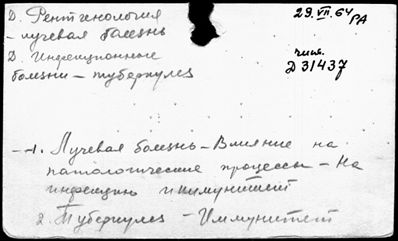 Д. Рентгенология
29.VII.64 РА
- лучевая болезнь
Д. Инфекционные
болезни – туберкулез
чит.
Д 31437
1. Лучевая болезнь – Влияние на
патологические процессы – На
инфекцию и иммунитет
2. Туберкулез – Иммунитет